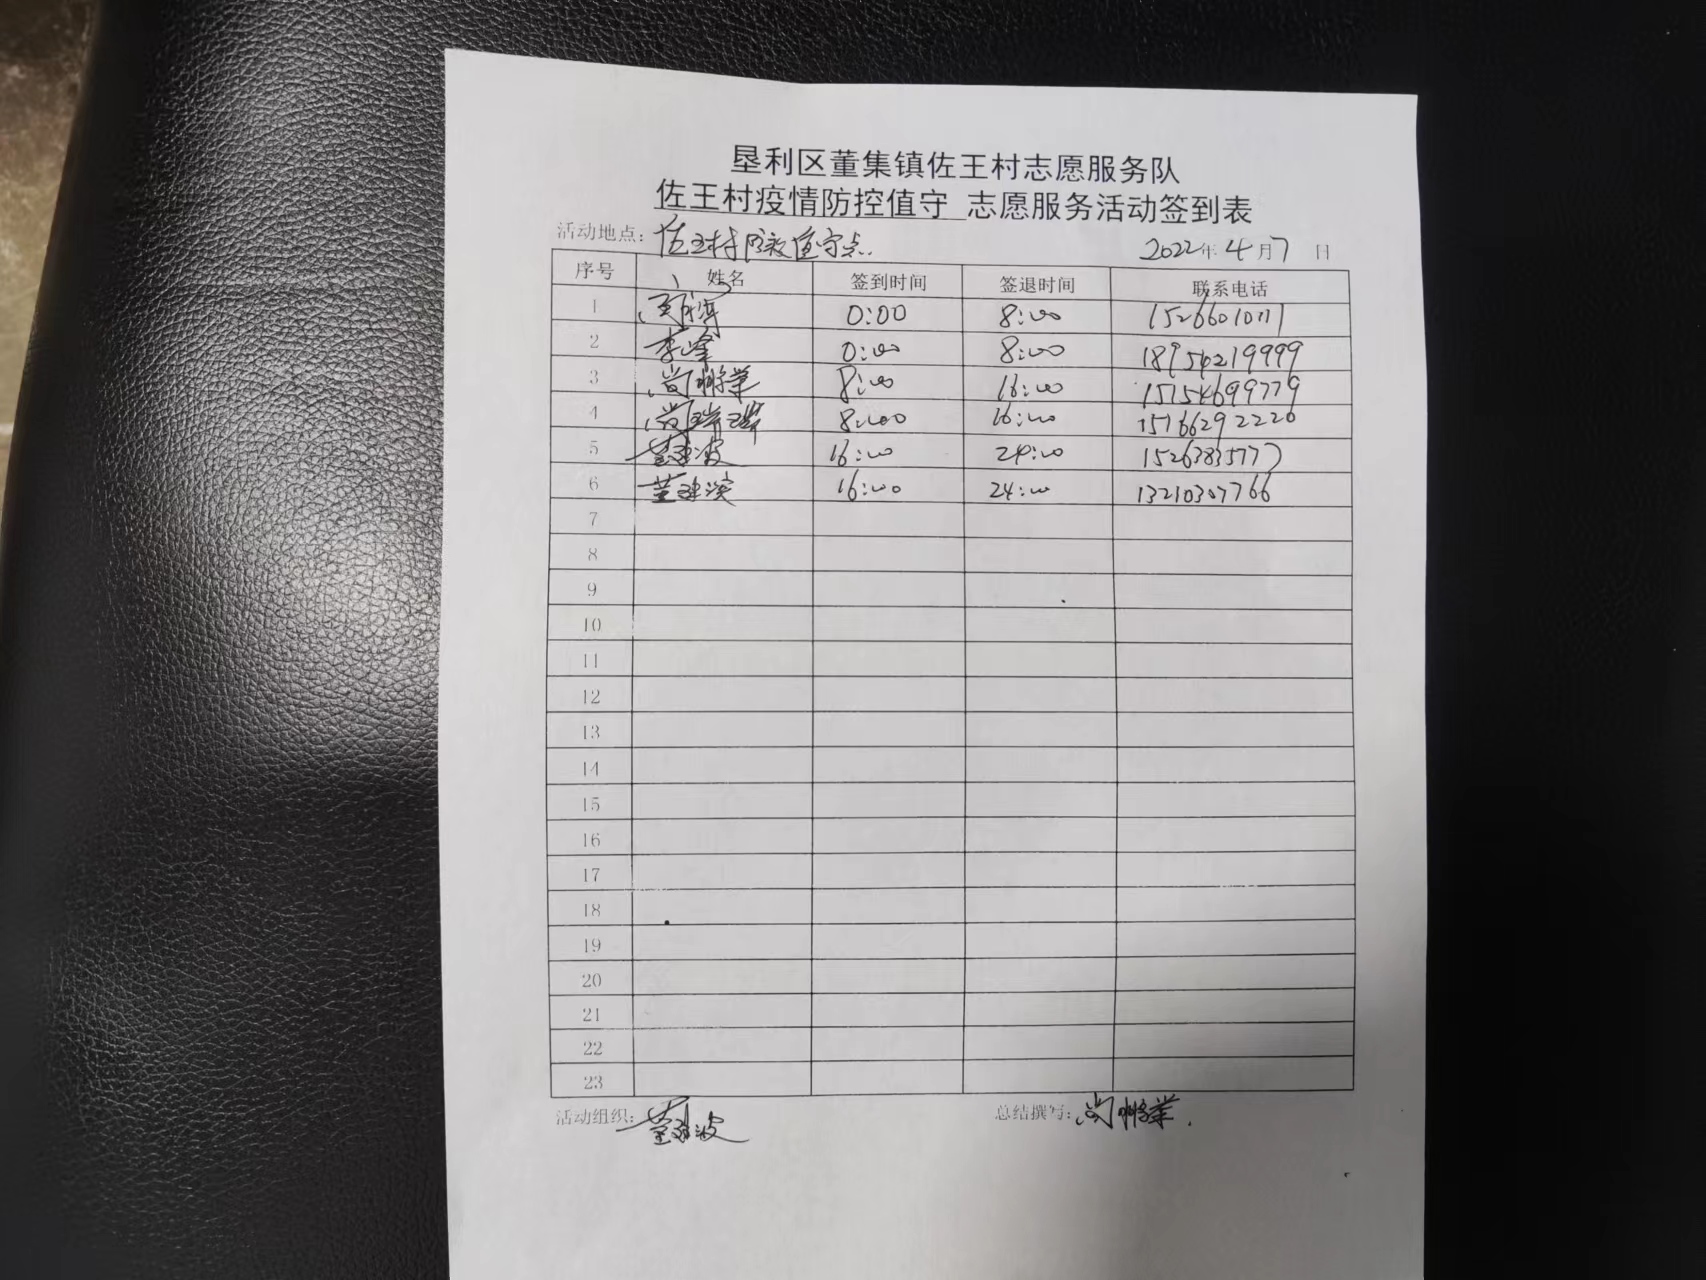 垦利区董集镇佐王村志愿服务队
佐王村疫情防控值守 志愿服务活动签到表
活动地点: 佐王村防疫值守点. 2022年4月7日
序号 姓名 签到时间 签退时间 联系电话
1 0:00 8:00
2 李峰 0:00 8:00 18954219999
3 尚 8:00 16:00 15154699779
4 尚 8:00 16:00 15166292220
5 董 波 16:00 24:00 15263835777
6 董 滨 16:00 24:00 13210307766
7
8
9
10
11
12
13
14
15
16
17
18
19
20
21
22
23
活动组织: 董 波 总结撰写: 尚